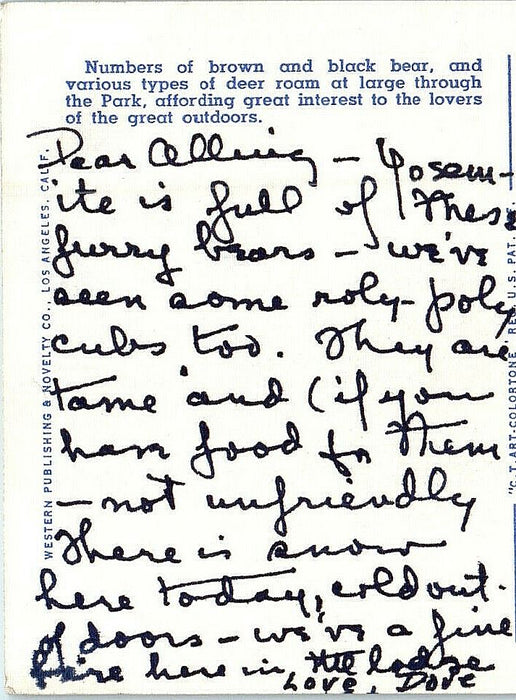 Numbers of brown and black bear, and
various types of deer roam at large through
the Park, affording great interest to the lovers
of the great outdoors.
Dear Alling — Yosem-
ite is full of these
furry bears — we've
seen some roly-poly
cubs too. They are
tame and (if you
have food for them
— not unfriendly
There is snow
here today, cold out-
of doors — we've a fine
fire here in the lodge
Love, Dove
WESTERN PUBLISHING & NOVELTY CO., LOS ANGELES, CALIF.
"C.T. ART-COLORTONE REG. U.S. PAT.